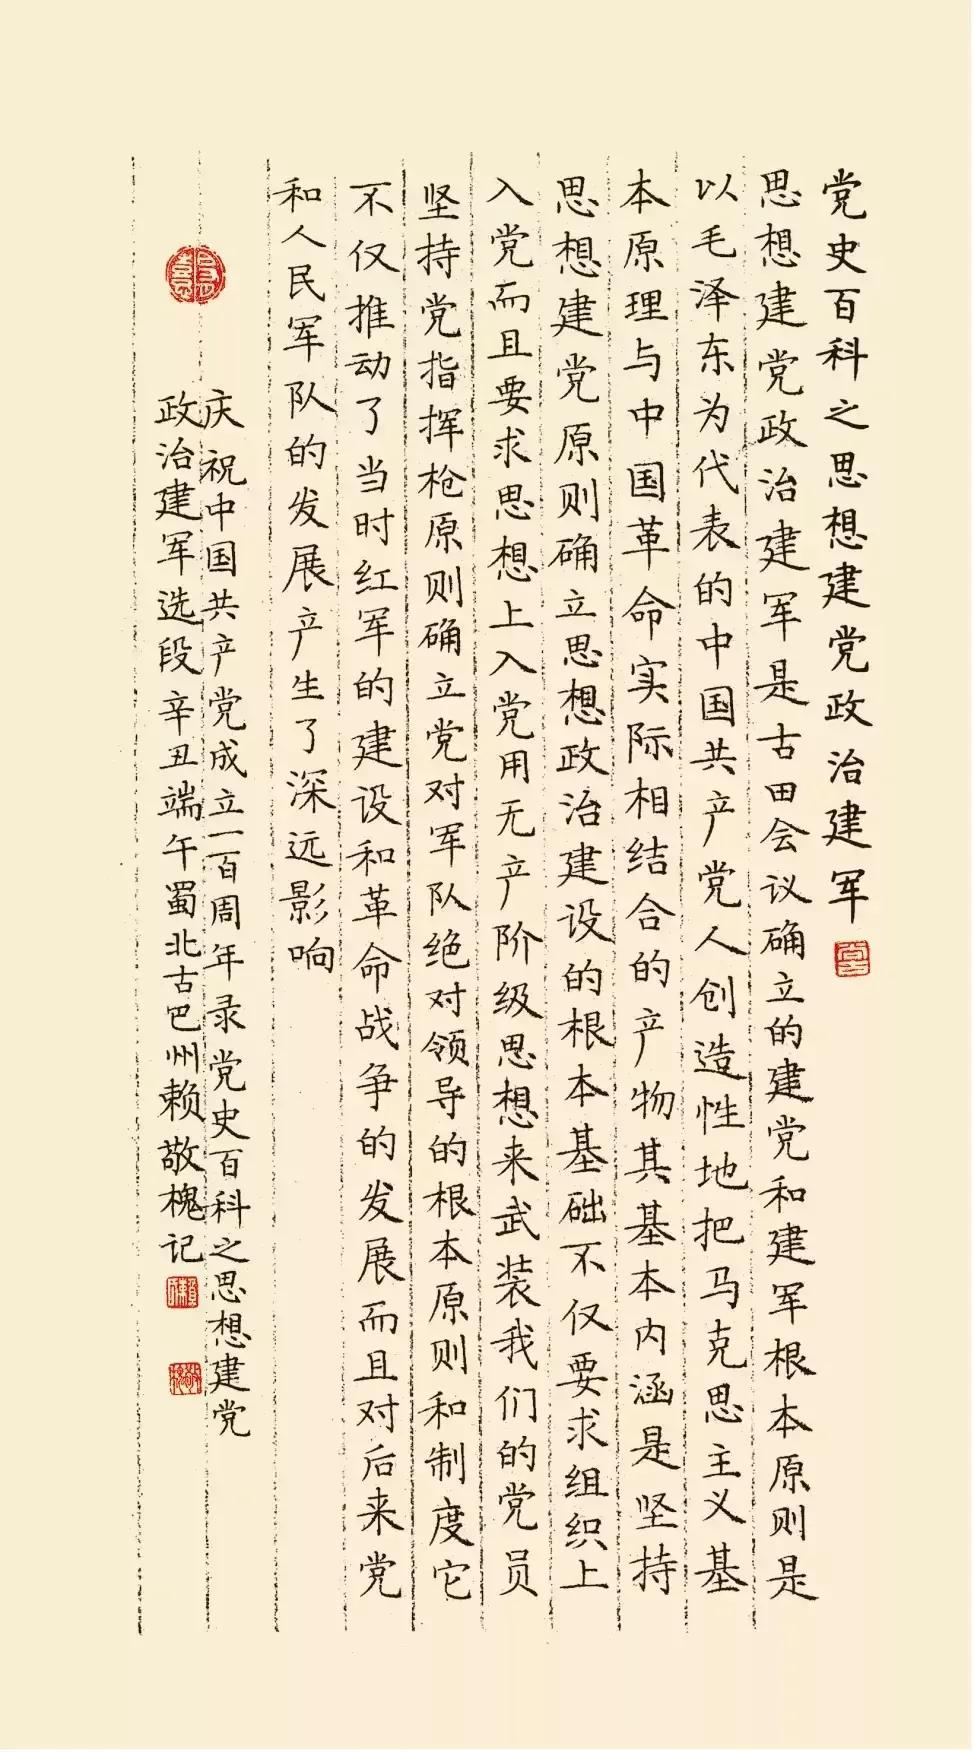 党史百科之思想建党政治建军
思想建党政治建军是古田会议确立的建党和建军根本原则是
以毛泽东为代表的中国共产党人创造性地把马克思主义基
本原理与中国革命实际相结合的产物其基本内涵是坚持
思想建党原则确立思想政治建设的根本基础不仅要求组织上
入党而且要求思想上入党用无产阶级思想来武装我们的党员
坚持党指挥枪原则确立党对军队绝对领导的根本原则和制度它
不仅推动了当时红军的建设和革命战争的发展而且对后来党
和人民军队的发展产生了深远影响
庆祝中国共产党成立一百周年录党史百科之思想建党
政治建军选段辛丑端午蜀北古巴州赖敬槐记